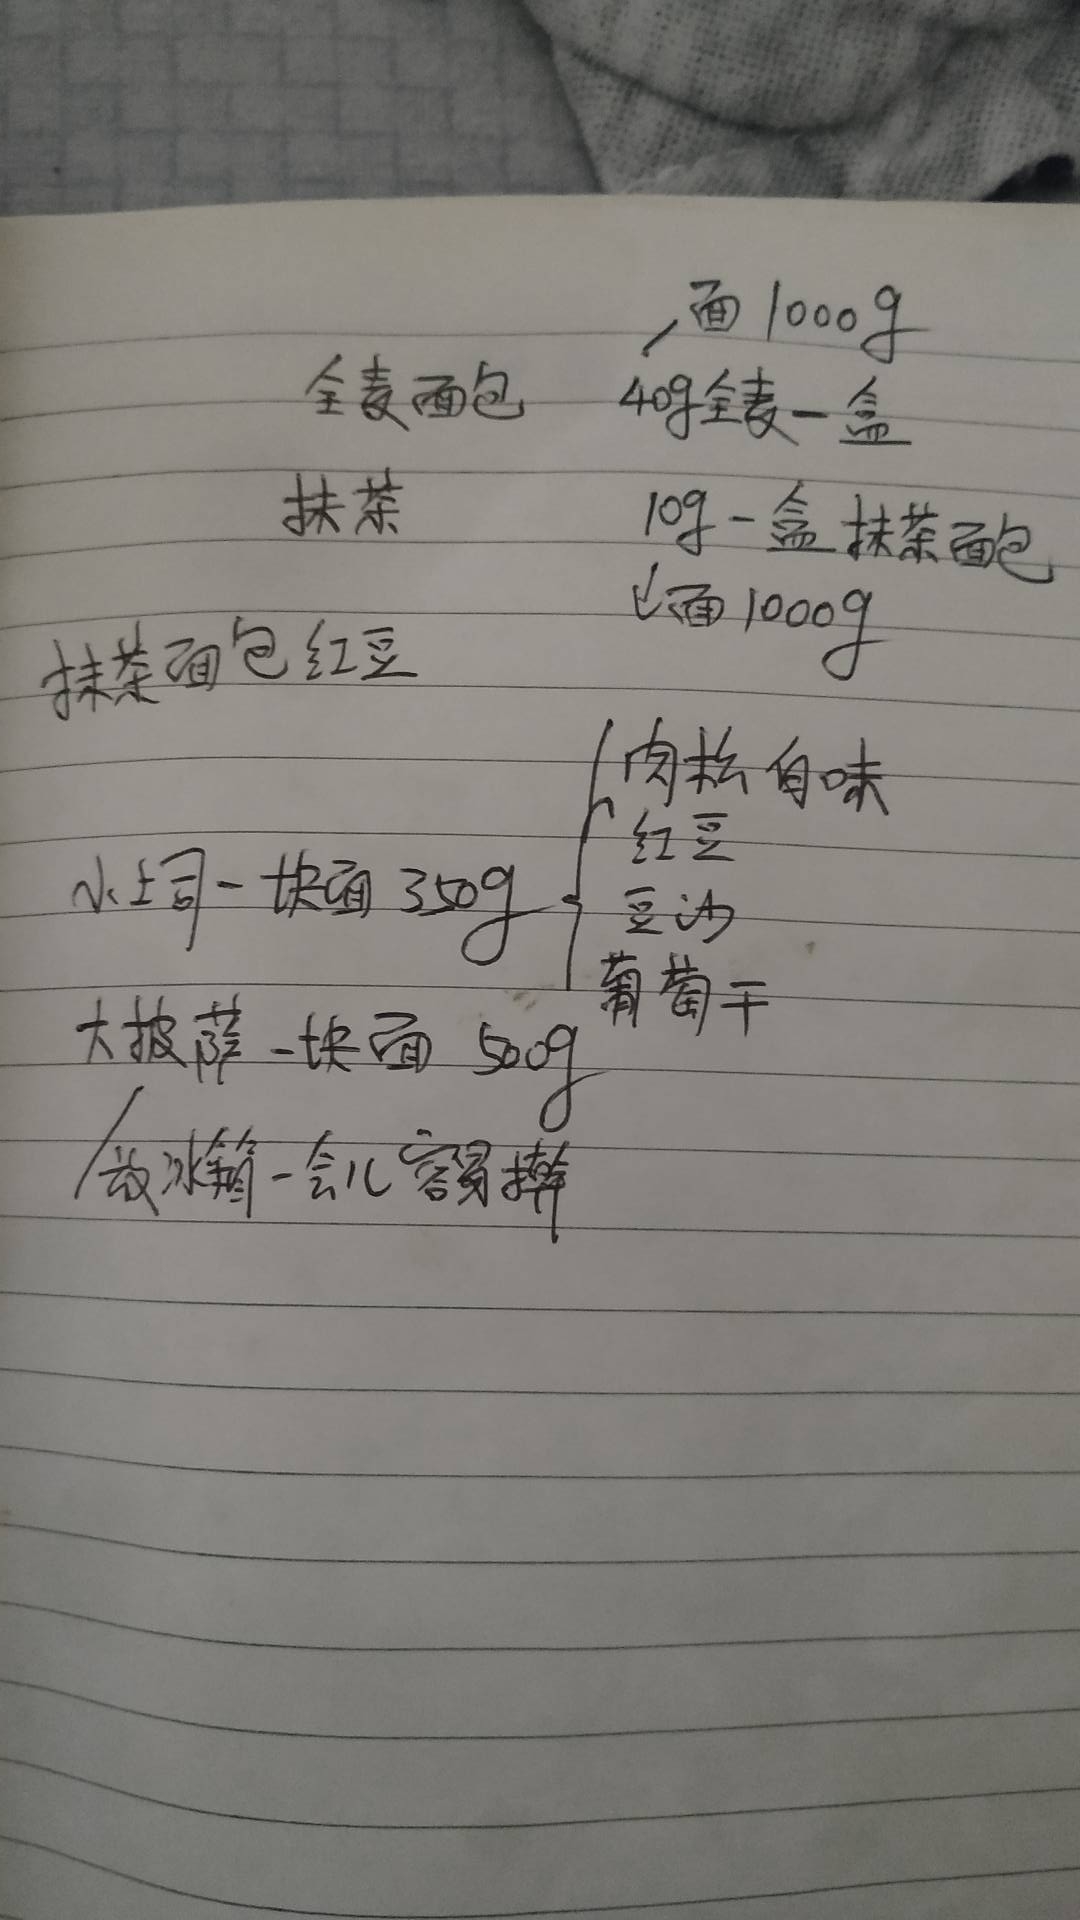 面1000g
全麦面包 40g全麦一盒
抹茶 10g一盒抹茶面包
面1000g
抹茶面包红豆
肉松 自味
红豆
小土司一块面350g
豆沙
葡萄干
大披萨一块面 500g
放冰箱一会儿容易擀